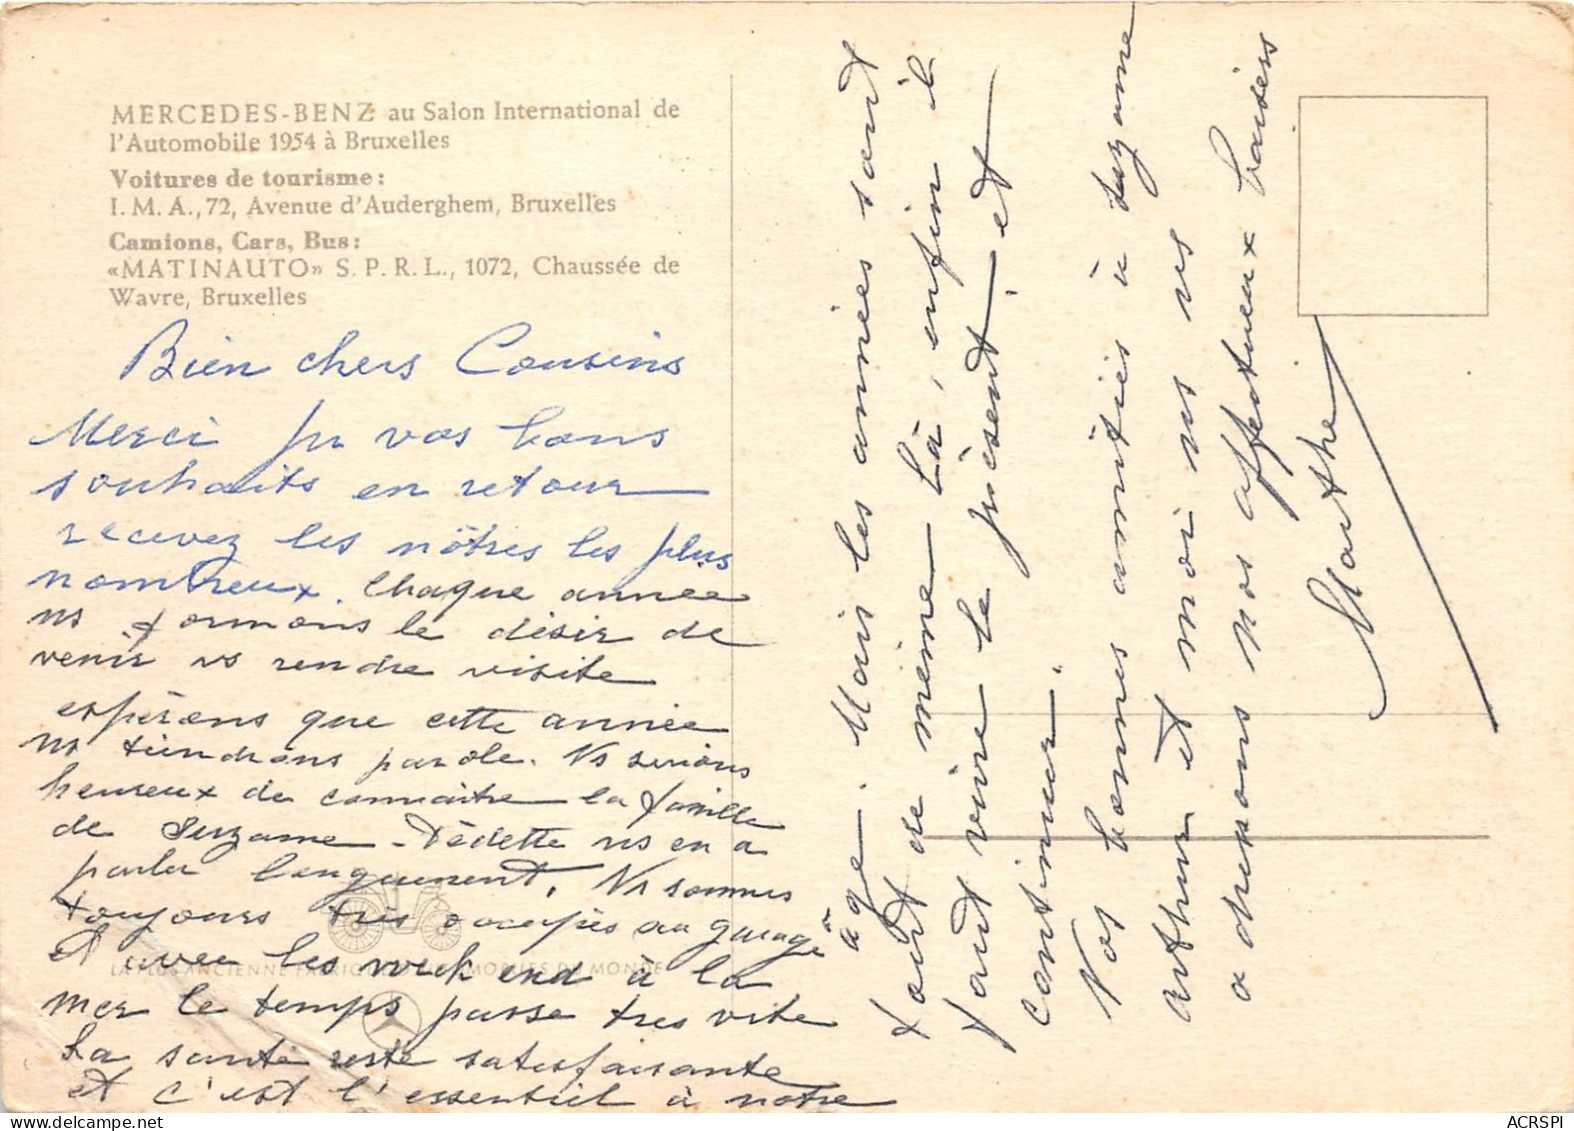 MERCEDES-BENZ au Salon International de
l'Automobile 1954 à Bruxelles
Voitures de tourisme:
I. M. A., 72, Avenue d'Auderghem, Bruxelles
Camions, Cars, Bus:
«MATINAUTO» S. P. R. L., 1072, Chaussée de
Wavre, Bruxelles
Bien chers Cousins
Merci pr vos bons
souhaits en retour
recevez les nôtres les plus
nombreux. Chaque année
ns formons le désir de
venir vs rendre visite
espérons que cette année
ns tiendrons parole. Ns serions
heureux de connaître la famille
de Suzanne - Dédette ns en a
parlé longuement. Ns sommes
toujours très occupés au garage
et avec les week end à la
mer le temps passe très vite
La santé reste satisfaisante
et c'est l'essentiel à notre
LA PLUS ANCIENNE FABRIQUE D'AUTOMOBILES DU MONDE
âge. Mais les années sont
tout de même là, enfin il
faut vivre le présent et
continuer.
Nos bonnes amitiés à Suzanne
Arthur et moi ns vs
adressons nos affectueux baisers
Marthe
ACRSPI